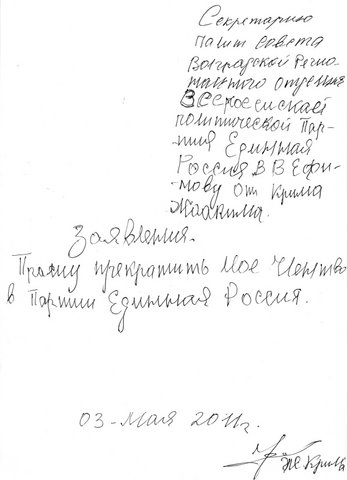 Секретарию
палит совета
Волградской Регио-
нального отделения
Всероссискаей
политической Пар-
тия Единная
Россия В В Ефи-
мову от Крима
Жоакима.
Заявления.
Прошу прекратить Мое Членство
в Партии Единная Россия.
03-Мая 2011г.
Ж Крима